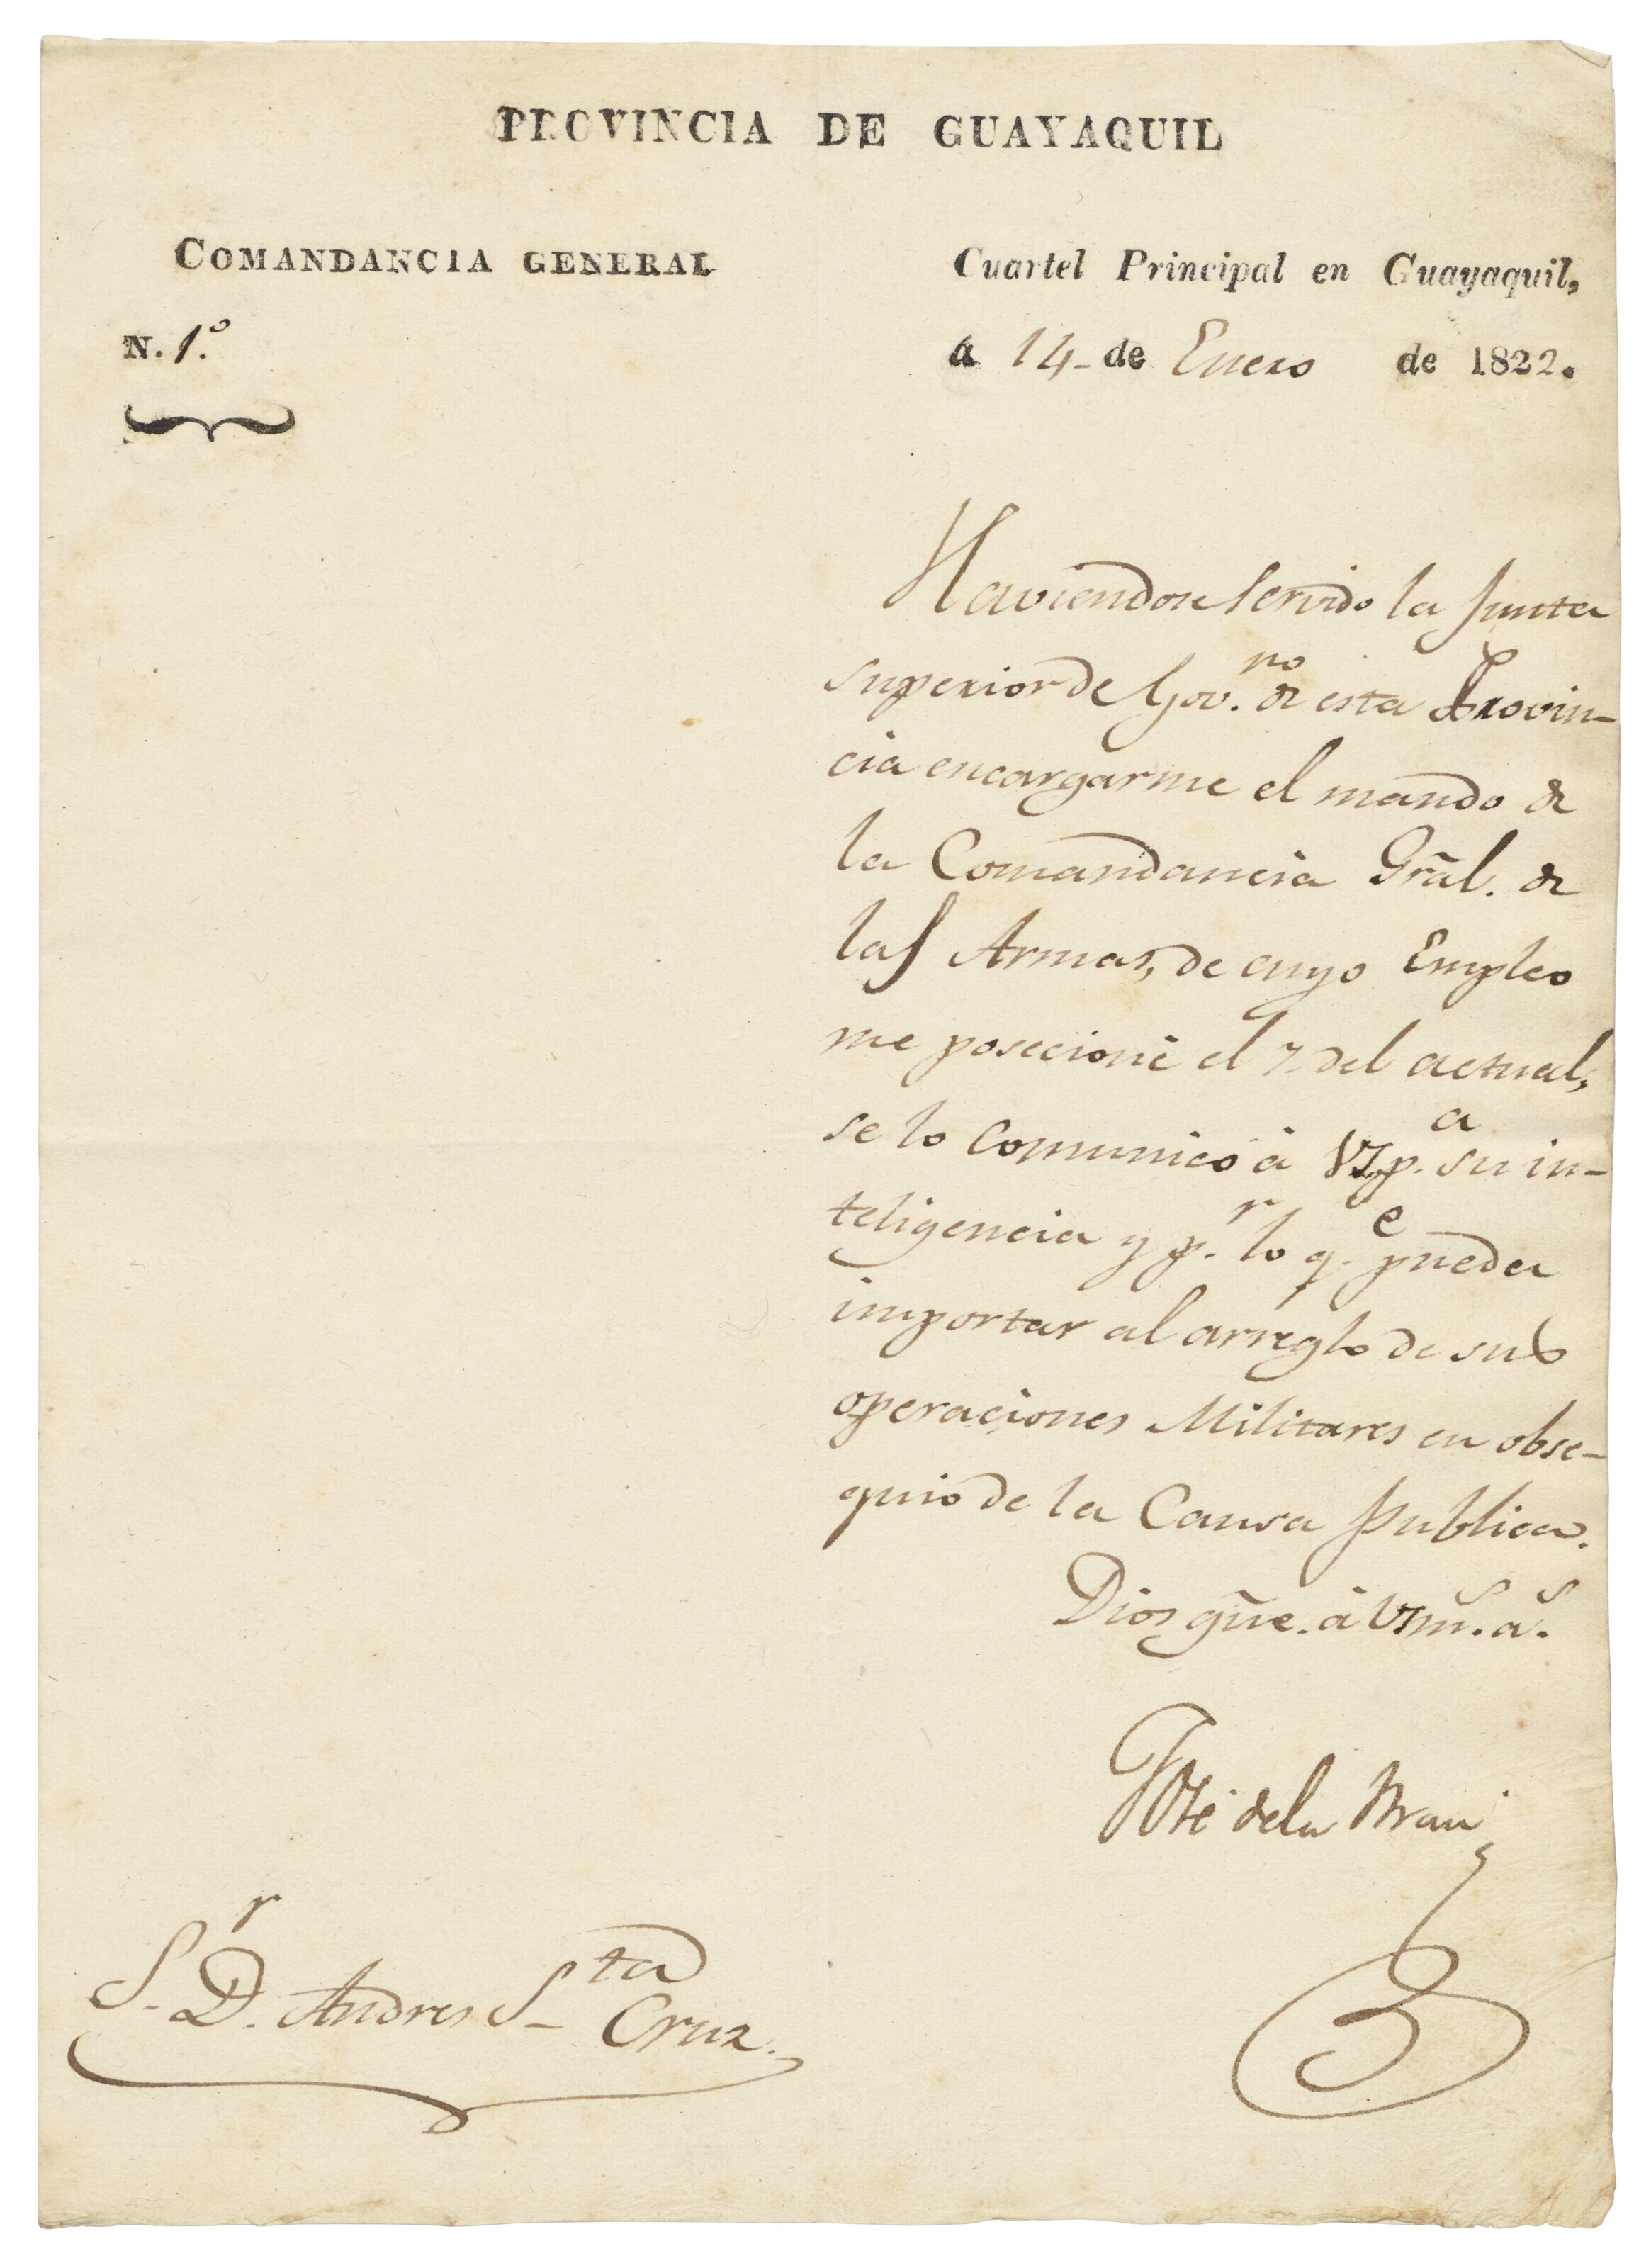 PROVINCIA DE GUAYAQUIL
COMANDANCIA GENERAL
Cuartel Principal en Guayaquil,
N. 1.º
á 14 de Enero de 1822.
Haviendose servido la Junta
superior de Gov.no de esta Provin-
cia encargarme el mando de
la Comandancia Gral. de
las Armas, de cuyo Empleo
me posecioné el 7 del actual,
se lo comunico á VS p.a su in-
teligencia y p.r lo q.e pueda
importar al arreglo de sus
operaciones Militares en obse-
quio de la Causa publica.
Dios gũe. á VS m.s a.s
José de la Mar
S.r D. Andres S.ta Cruz.